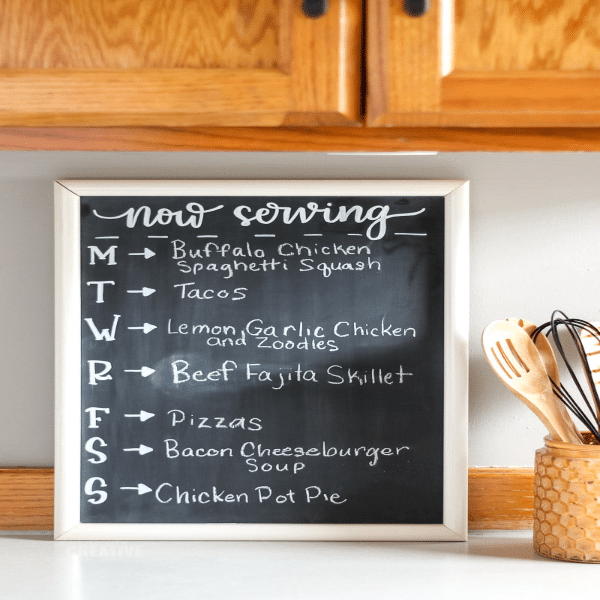 now serving
M → Buffalo Chicken
Spaghetti Squash
T → Tacos
W → Lemon Garlic Chicken
and Zoodles
R → Beef Fajita Skillet
F → Pizzas
S → Bacon Cheeseburger
Soup
S → Chicken Pot Pie